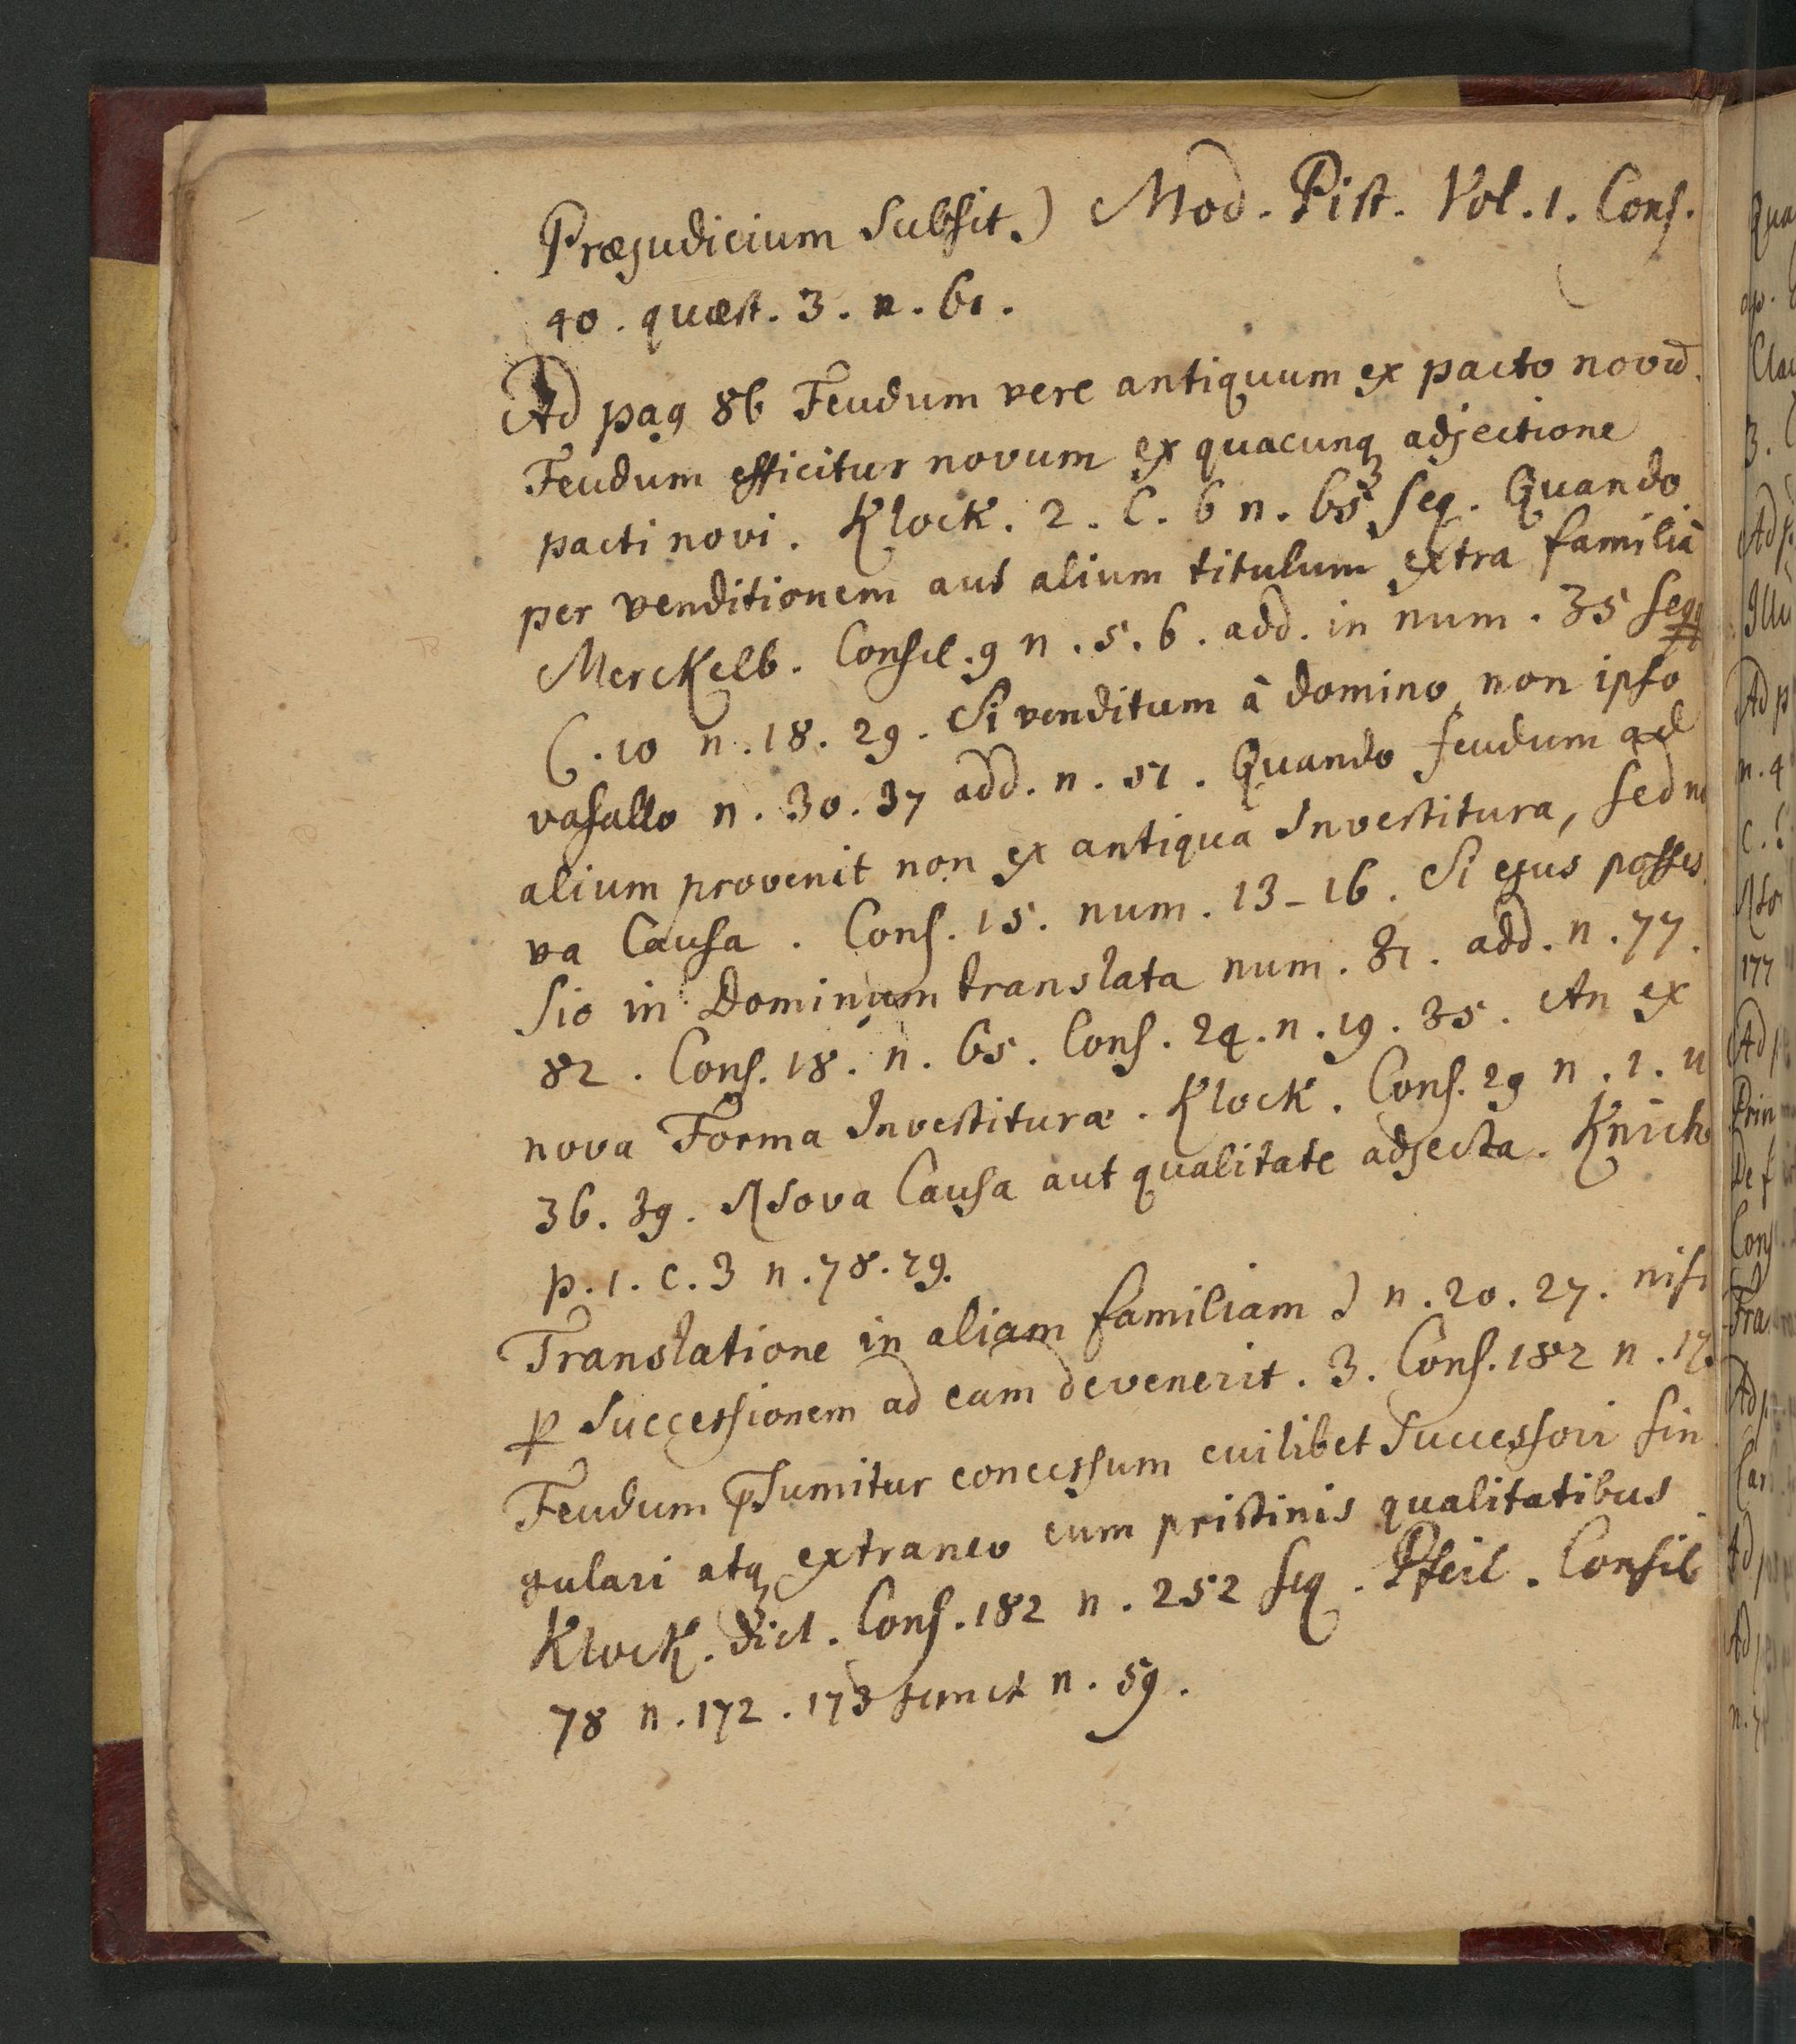 Præjudicium Subsit.) Mod. Pist. Vol. 1. Cons.
40. quæst. 3. n. 61.
Ad pag 86 Feudum vere antiquum ex pacto novū.
Feudum efficitur novum ex quacunq adjectione
pacti novi. Klock. 2. C. 6 n. 653 seq. Quando
per venditionem aut alium titulum extra familiā
Merckelb. Consil. 9 n. 5. 6. add. in num. 35 seqq
C. 10 n. 18. 29. Si venditum â domino non ipso
vasallo n. 30. 37 add. n. 51. Quando feudum ad
alium provenit non ex antiqua Investitura, sed no
va Causa. Cons. 15. num. 13-16. Si ejus posses
sio in Dominum translata num. 31. add. n. 77.
82. Cons. 18. n. 65. Cons. 24. n. 19. 35. An ex
nova Forma Investituræ. Klock. Cons. 29 n. 1. 11
36. 39. Nova Causa aut qualitate adjecta. Knich
p. 1. c. 3 n. 78. 79.
Translatione in aliam familiam) n. 20. 27. nisi
p Successionem ad eam devenerit. 3. Cons. 182 n. 17.
Feudum pSumitur concessum cuilibet Successori sin
gulari atq extraneo cum pristinis qualitatibus
Klock. dict. Cons. 182 n. 252 seq. Pfeil. Consil
78 n. 172. 173 junct n. 59.